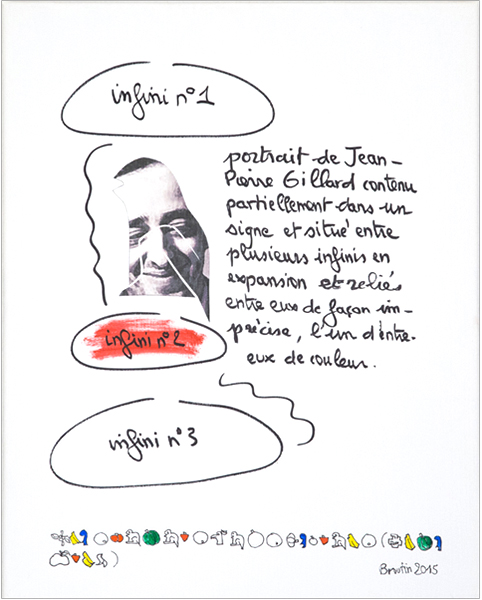 infini n°1
portrait de Jean-
Pierre Gillard contenu
partiellement dans un
signe et situé entre
plusieurs infinis en
expansion et reliés
entre eux de façon im-
précise, l'un d'entre-
eux de couleur.
infini n°2
infini n°3
2015